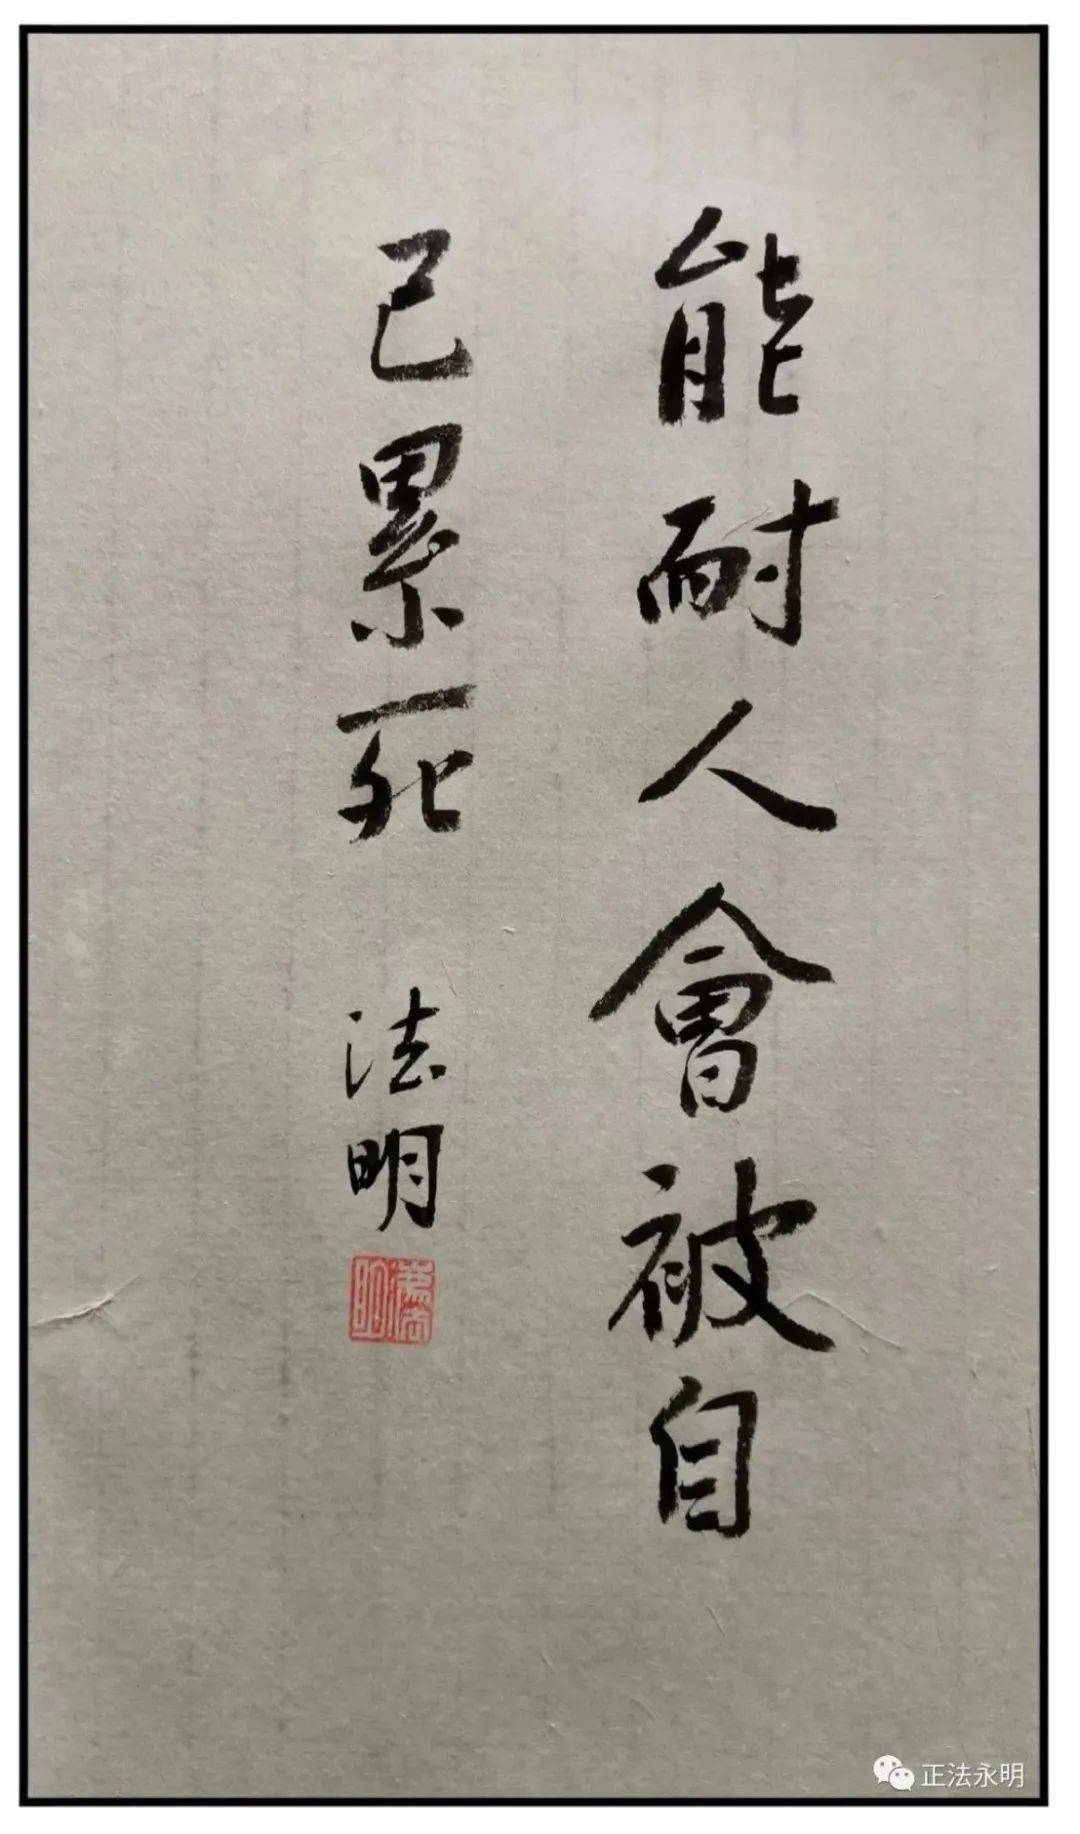 能耐人會被自
己累死
法明
正法永明